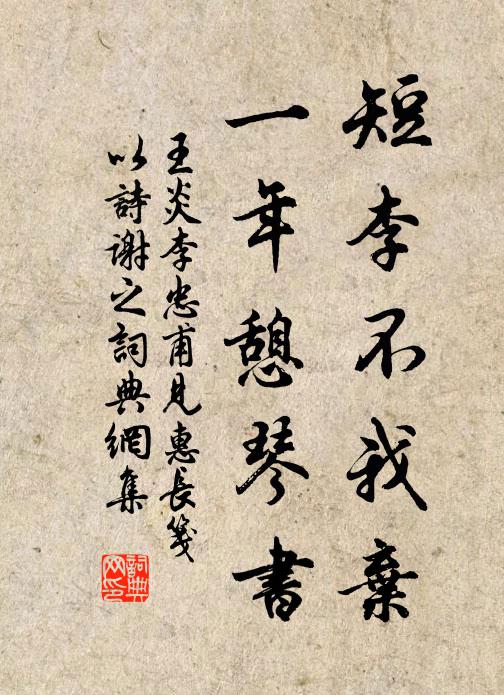 短李不我棄
一年憩琴書
王炎李忠甫見惠長箋
以詩谢之詞典網集
詞典
网印